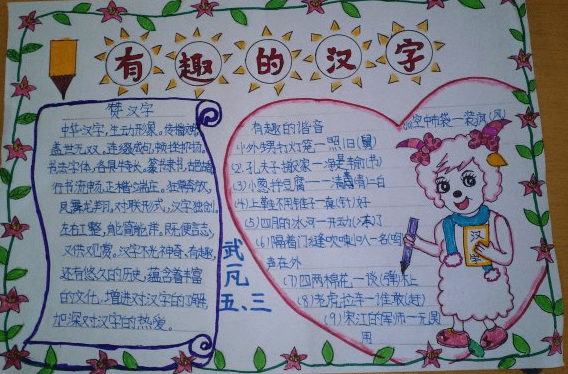 有趣的汉字
赞汉字
中华汉字,生动形象。传播文明,
盖世无双。连缀成句,顿挫抑扬。
书法字体,各具特长,篆书隶书,古朴端庄。
行书流畅,正楷端庄。狂草奔放,
凤舞龙翔。对联形式,汉字独创。
左右工整,能简能详。既便言志,
又供观赏。汉字不光神奇、有趣,
还有悠久的历史,蕴含着丰富
的文化,增进对汉字的
加深对汉字的热爱。
武一凡
五、三
有趣的谐音
(1)外甥打灯笼一照旧(舅)
(2)孔夫子搬家一净是输(书)
(3)小葱拌豆腐一一清(青)二白
(4)上鞋不用锥子一真(针)好
(5)四月的冰河一开动(冻)了
(6)隔着门缝吹喇叭一名(鸣)
声在外
(7)四两棉花一谈(弹)不上
(8)老虎拉车一谁敢(赶)
(9)宋江的军师一无(吴)
用
(10)空中布袋一装疯(风)
汉字